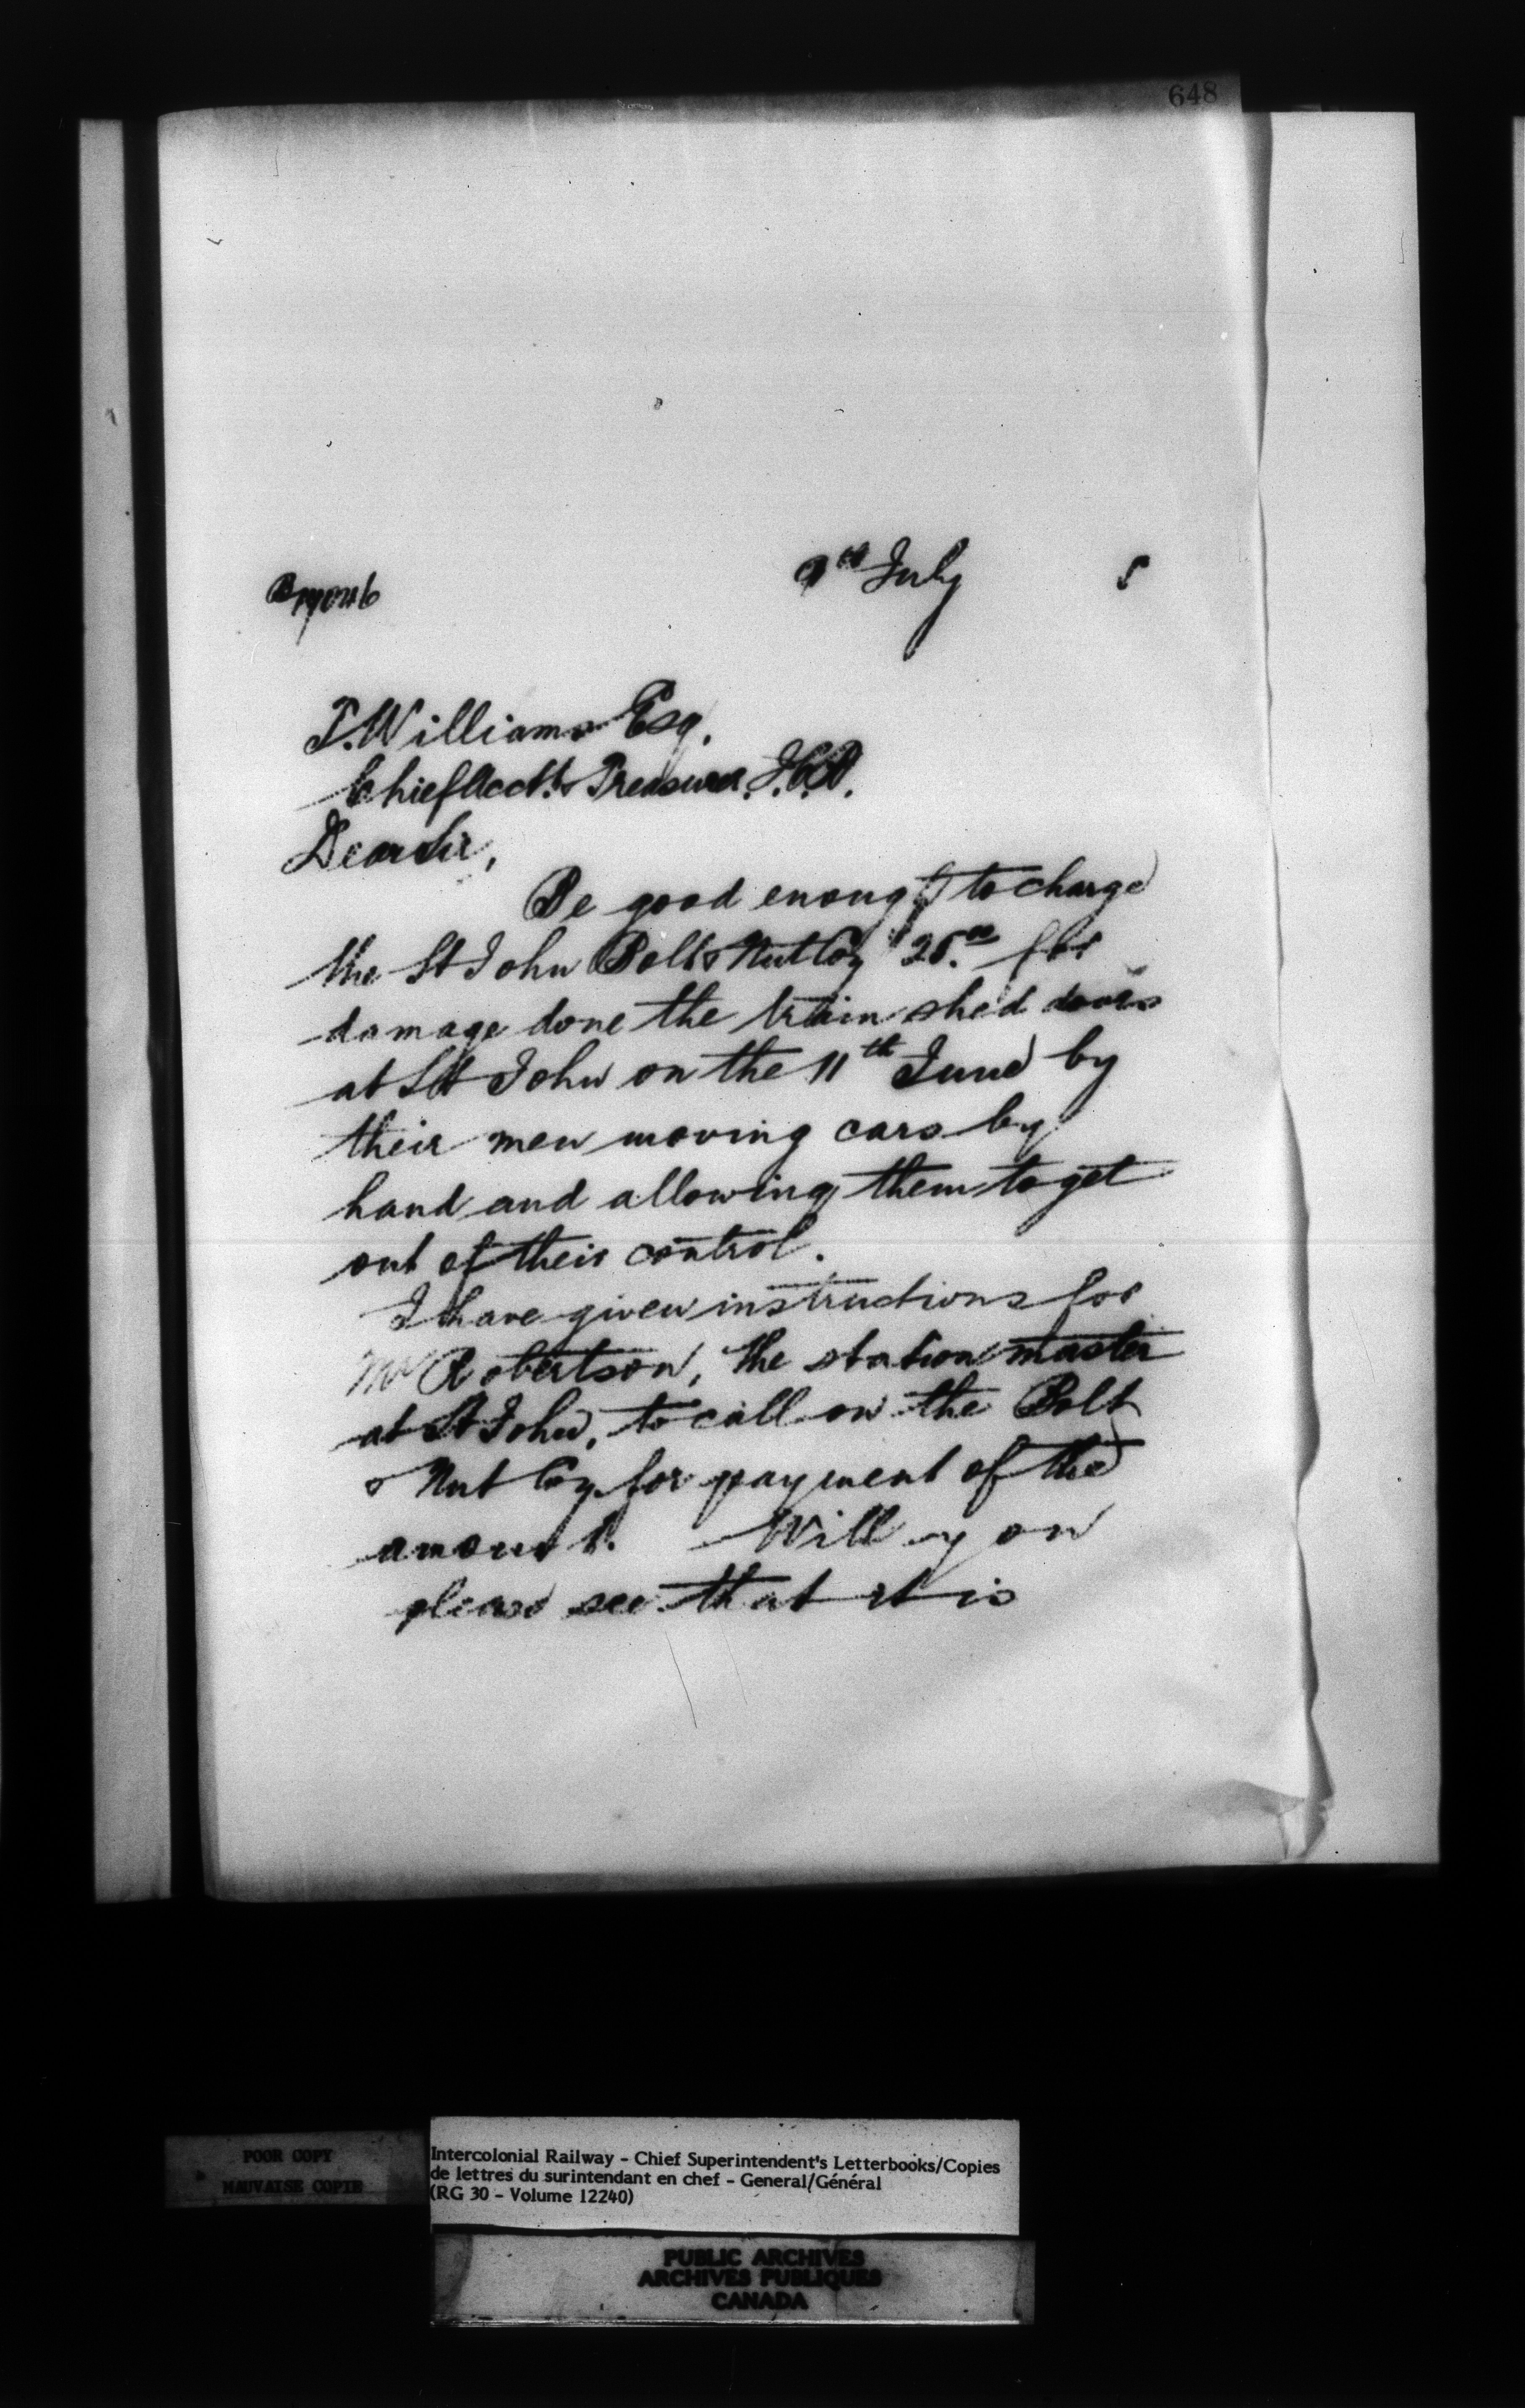 648
9th July 5
T. Williams Esq.
Chief Acct. & Treasurer I.C.R.
Dear Sir,
Be good enough to charge
the St John Bolt & Nut Coy $25.00 for
damage done the train shed doors
at St John on the 11th June by
their men moving cars by
hand and allowing them to get
out of their control.
I have given instructions for
Mr Robertson, the station master
at St John, to call on the Bolt
& Nut Coy for payment of the
amount. Will you
please see that it is
POOR COPY
MAUVAISE COPIE
Intercolonial Railway - Chief Superintendent's Letterbooks/Copies
de lettres du surintendant en chef - General/Général
(RG 30 - Volume 12240)
PUBLIC ARCHIVES
ARCHIVES PUBLIQUES
CANADA